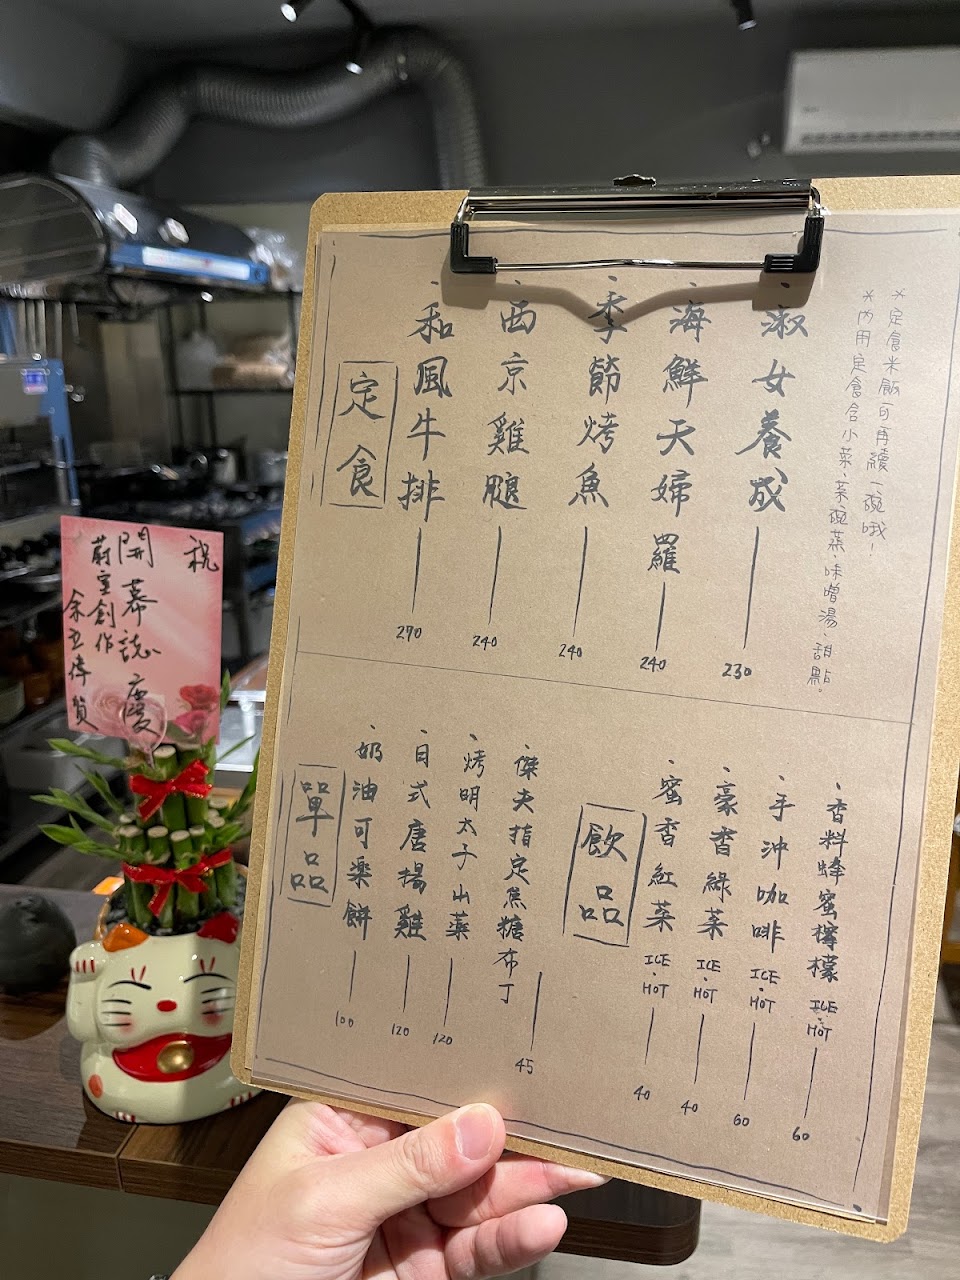 定食
、和風牛排 270
、西京雞腿 240
、季節烤魚 240
、海鮮天婦羅 240
、淑女養成 230
*定食米飯可再續一碗哦!
*內用定食含小菜、茶碗蒸、味噌湯、甜點。
單品
、奶油可樂餅 100
、日式唐揚雞 120
、烤明太子山藥 120
、傑夫指定焦糖布丁 45
飲品
、蜜香紅茶 ICE・HOT 40
、豪香綠茶 ICE・HOT 40
、手沖咖啡 ICE・HOT 60
、香料蜂蜜檸檬 ICE・HOT 60
祝
開幕誌慶
創作
賀